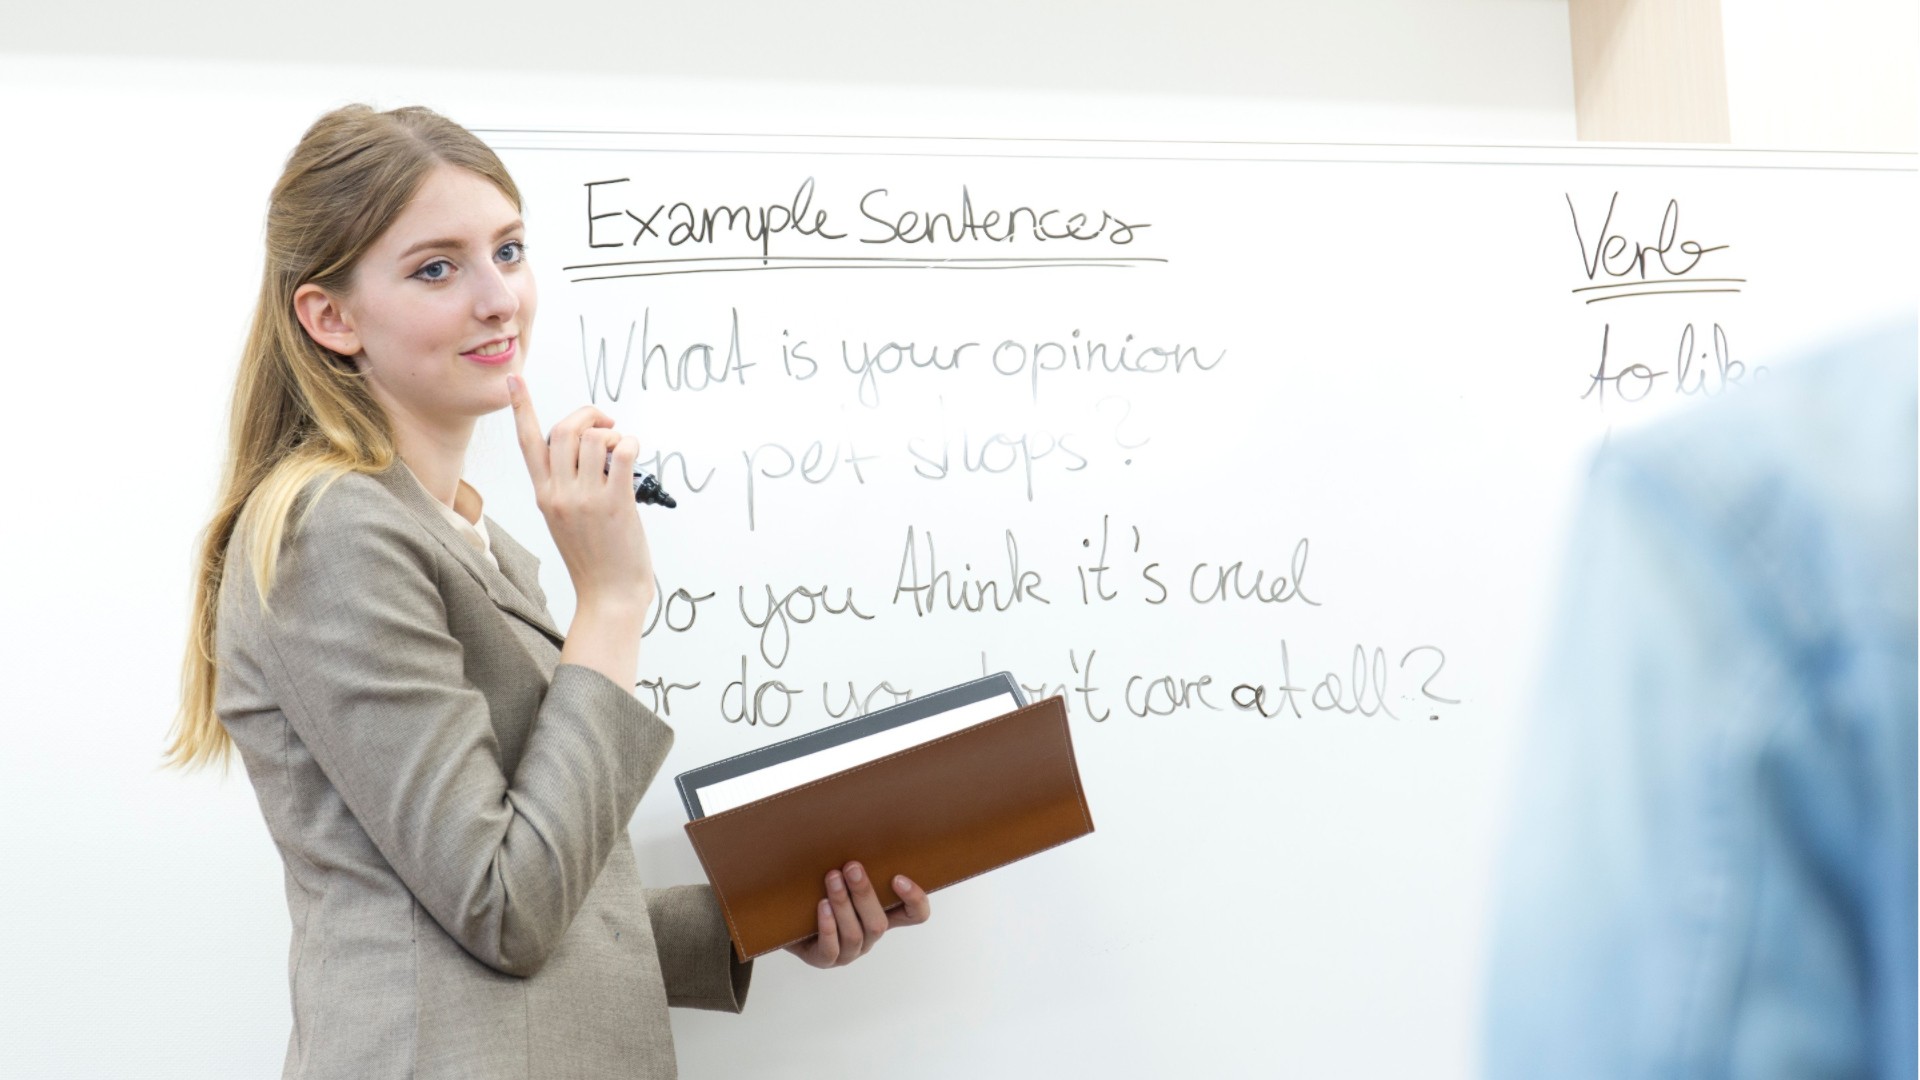 Example Sentences
What is your opinion
on pet shops?
Do you think it's cruel
or do you don't care at all?
Verb
to like